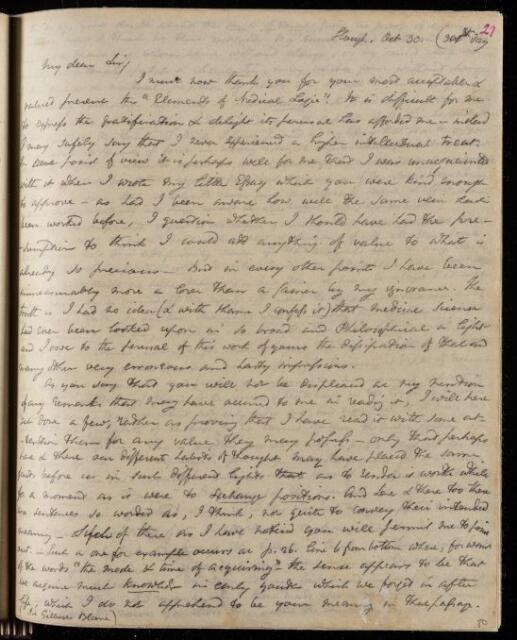 27
Slough. Oct 30. (30th Day
My dear Sir,
I must now thank you for your most acceptable &
valued present the "Elements of Medical Logic". It is difficult for me
to express the gratification & delight its perusal has afforded me – indeed
I may safely say that I never experienced a higher intellectual treat.
In some points of view it is perhaps well for me that I was unacquainted
with it when I wrote my little Essay which you were kind enough
to approve – as had I been aware how well the same vein had
been worked before, I question whether I should have had the pre-
-sumption to think I could add anything of value to what is
already so precious – But in every other point I have been
immeasurably more a loser than a gainer by my ignorance. The
truth is I had no idea (& with shame I confess it) that medical science
had ever been looked upon in so broad and Philosophical a light
and I owe to the perusal of this work of yours the dissipation of that and
many other very erroneous and hasty impressions.
As you say that you will not be displeased at my mention
of any remarks that may have occurred to me in reading it, I will here
set down a few, rather as proving that I have read it with some at-
-tention than for any value they may possess – only that perhaps
here & there our different habits of thought may have placed the same
points before us in such different lights that as to render it worth while
for a moment as it were to exchange positions. And here & there too there
are sentences so worded as, I think, not quite to convey their intended
meaning – Such of these as I have noticed you will permit me to point
out. – Such a one for example occurs at p. 26. line 6 from bottom where, for want
of the words "the mode & time of acquiring" the sense appears to be that
we acquire much knowledge in early youth which we forget in after
life, which I do not apprehend to be your meaning in that passage.
(Sir Gilbert Blane)